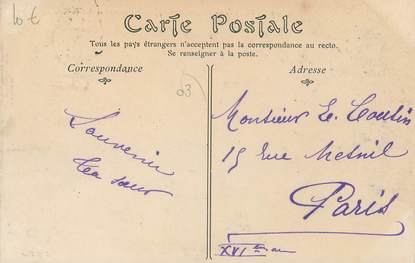 10 €
Carte Postale
Tous les pays étrangers n'acceptent pas la correspondance au recto.
Se renseigner à la poste.
Correspondance
Adresse
03
Souvenir
Ta sœur
Monsieur E. Coutin
15 rue Mesnil
Paris
XVI